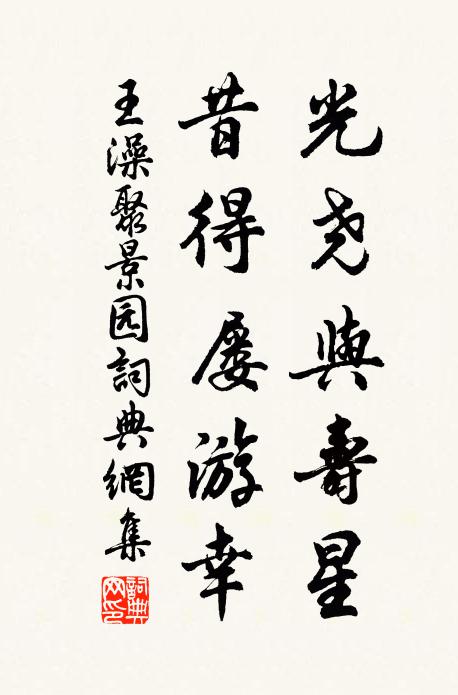 光尧與壽星
昔得屡游幸
王澡聚景园詞典網集
詞典網印